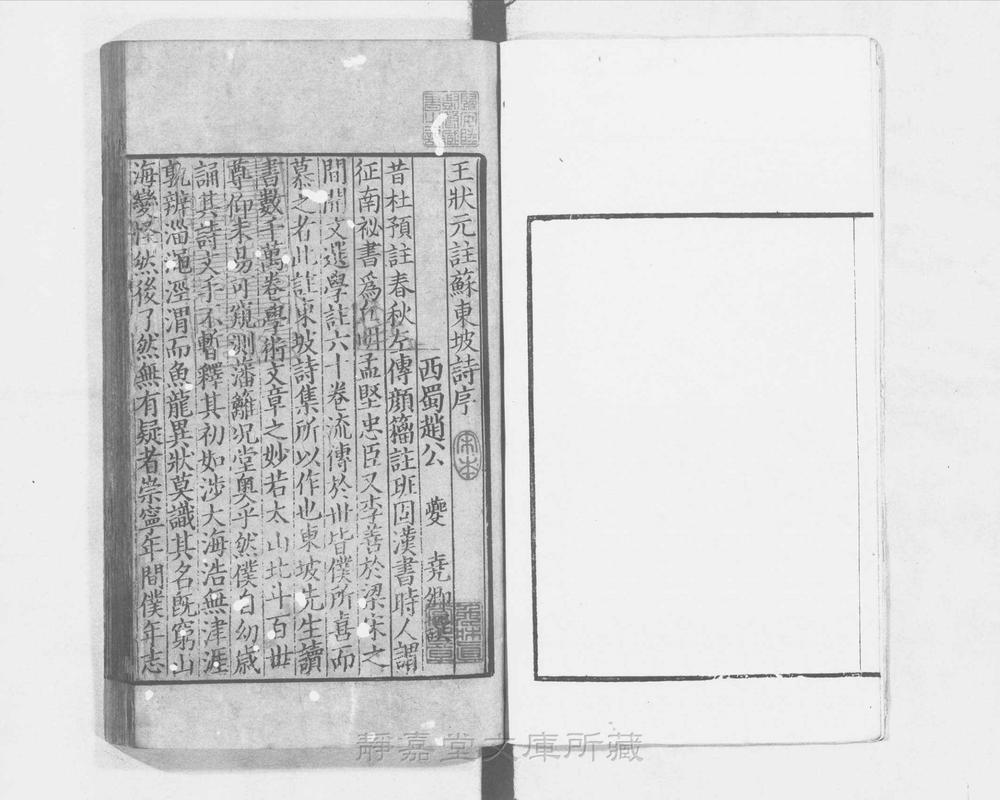 王狀元註蘇東坡詩序
宋本
西蜀趙公 夔 堯卿
昔杜預註春秋左傳顔籀註班固漢書時人謂
征南祕書爲丘明孟堅忠臣又李善於梁宋之
間開文選學註六十卷流傳於世皆僕所喜而
慕之者此註東坡詩集所以作也東坡先生讀
書數千萬卷學術文章之妙若太山北斗百世
尊仰未易可窺測藩籬况堂奥乎然僕自幼歲
誦其詩文手不暫釋其初如涉大海浩無津涯
孰辨淄澠涇渭而魚龍異狀莫識其名既窮山
海變怪然後了然無有疑者崇寧年間僕年志
靜嘉堂文庫所藏